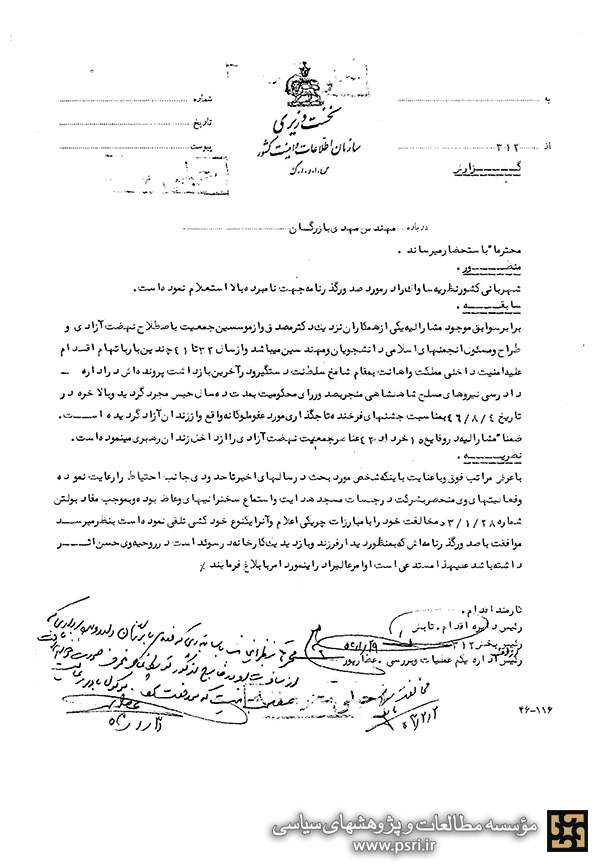 نخست وزیری
سازمان اطلاعات و امنیت کشور
س.ا.و.ا.ک
به
از ۳۱۲
گزارش
شماره
تاریخ
پیوست
درباره مهندس مهدی بازرگان
محترما" باستحضار میرساند .
منظور .
شهربانی کشور نظریه ساواک را در مورد صدور گذرنامه جهت نامبرده بالا استعلام نموده است .
سابقه .
برابر سوابق موجود مشارالیه یکی از همکاران نزدیک دکتر مصدق و از موسسین جمعیت باصطلاح نهضت آزادی و
طراح و مسئول انجمنهای اسلامی دانشجویان و مهندسین میباشد و از سال ۳۲ تا ۴۱ چندین بار باتهام اقدام
علیه امنیت داخلی مملکت و اهانت بمقام شامخ سلطنت دستگیر و در آخرین بازداشت پرونده اش در اداره
دادرسی نیروهای مسلح شاهنشاهی منجر بصدور رای محکومیت بمدت ده سال حبس مجرد گردید و بالاخره در
تاریخ ۴۶/۸/۴ بمناسبت جشنهای فرخنده تاجگذاری مورد عفو ملوکانه واقع و از زندان آزاد گردیده است .
ضمنا" مشارالیه در وقایع ۱۵ خرداد ۴۲ عناصر جمعیت نهضت آزادی را از داخل زندان رهبری مینموده است .
نظریه .
با عرض مراتب فوق و با عنایت باینکه شخص مورد بحث در سالهای اخیر تا حدودی جانب احتیاط را رعایت نموده
و فعالیتهای وی منحصر بشرکت در جلسات مسجد هدایت و استماع سخنرانیهای وعاظ بوده و بموجب مفاد بولتن
شماره ۳/۱/۲۸ مخالفت خود را با مبارزات چریکی اعلام و آنرا یکنوع خود کشی تلقی نموده است بنظر میرسد
موافقت با صدور گذرنامه اش که بمنظور دیدار فرزند و بازدید یک کارخانه در سوئد است در روحیه وی حسن اثر
داشته باشد علیهذا مستدعی است اوامر عالی را در اینمورد امر بابلاغ فرمایند ٪
کارمند اقدام .
رئیس دایره اقدام . تابش
رئیس بخش ۳۱۲
رئیس اداره یکم عملیات و بررسی . عطارپور
۴۶-۱۱۶
مؤسسه مطالعات و پژوهشهای سیاسی
www.psri.ir